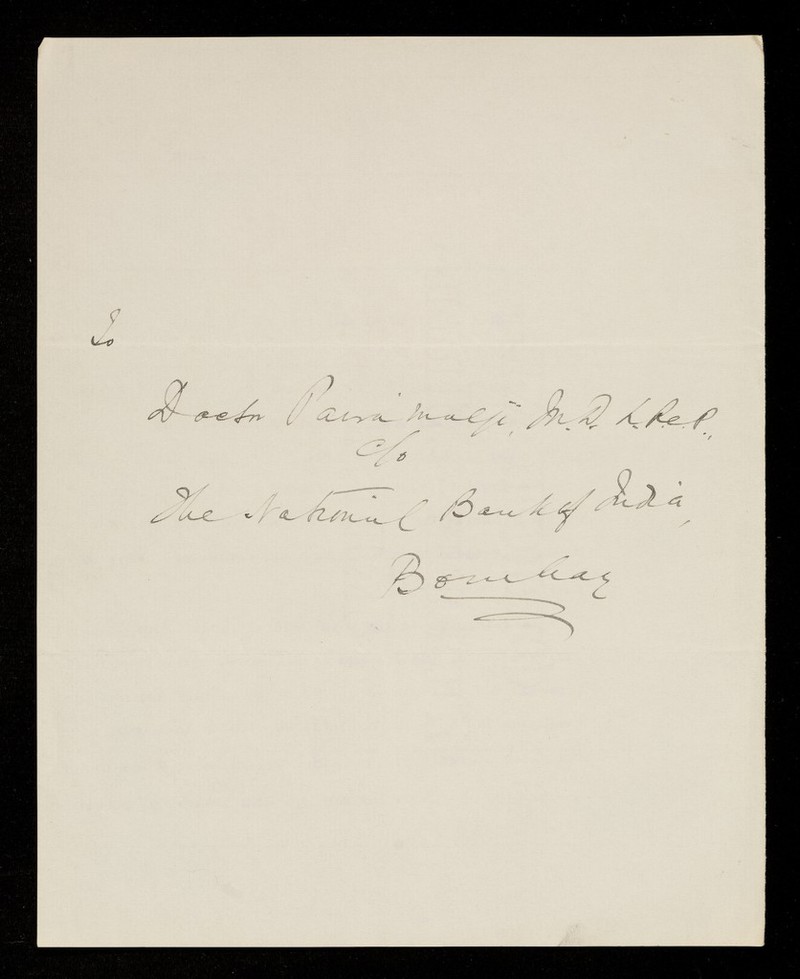 To
Doctor Paira Mallji, M.D. L.R.C.P.,
c/o
The National Bank of India,
Bombay